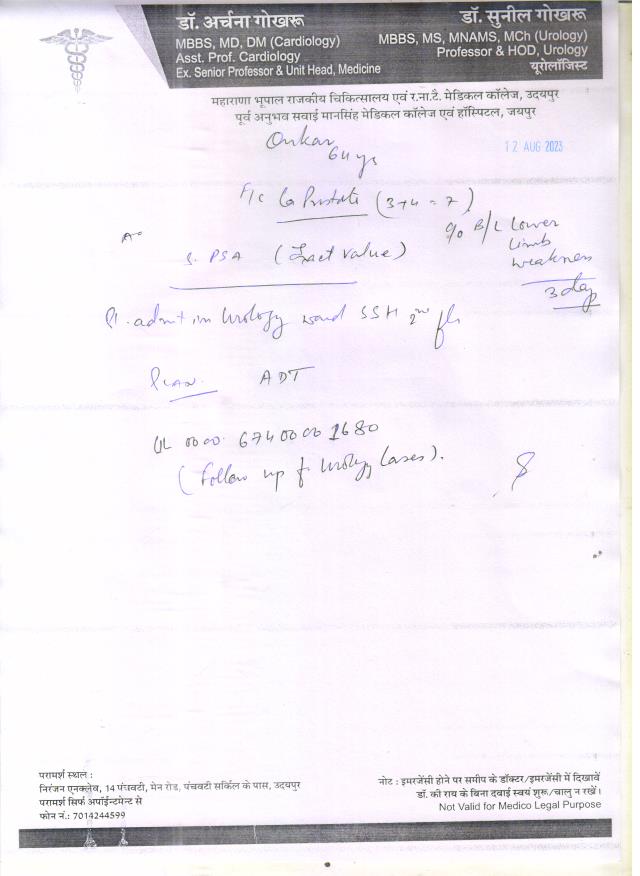 डॉ. अर्चना गोखरू
MBBS, MD, DM (Cardiology)
Asst. Prof. Cardiology
Ex. Senior Professor & Unit Head, Medicine
डॉ. सुनील गोखरू
MBBS, MS, MNAMS, MCh (Urology)
Professor & HOD, Urology
यूरोलॉजिस्ट
महाराणा भूपाल राजकीय चिकित्सालय एवं र.ना.टै. मेडिकल कॉलेज, उदयपुर
पूर्व अनुभव सवाई मानसिंह मेडिकल कॉलेज एवं हॉस्पिटल, जयपुर
Onkar
64 yrs
12 AUG 2023
F/C Ca Prostate (3+4=7)
c/o B/L Lower
Limb
weakness
3 day
S. PSA (Exact value)
Pt. admit in Urology ward SSH 2nd flr
PLAN. ADT
(Follow up of Urology Cases).
परामर्श स्थल :
निरंजन एनक्लेव, 14 पंचवटी, मेन रोड, पंचवटी सर्किल के पास, उदयपुर
परामर्श सिर्फ अपॉईन्टमेन्ट से
फोन नं.: 7014244599
नोट : इमरजेंसी होने पर समीप के डॉक्टर/इमरजेंसी में दिखावें
डॉ. की राय के बिना दवाई स्वयं शुरू/चालु न रखें।
Not Valid for Medico Legal Purpose